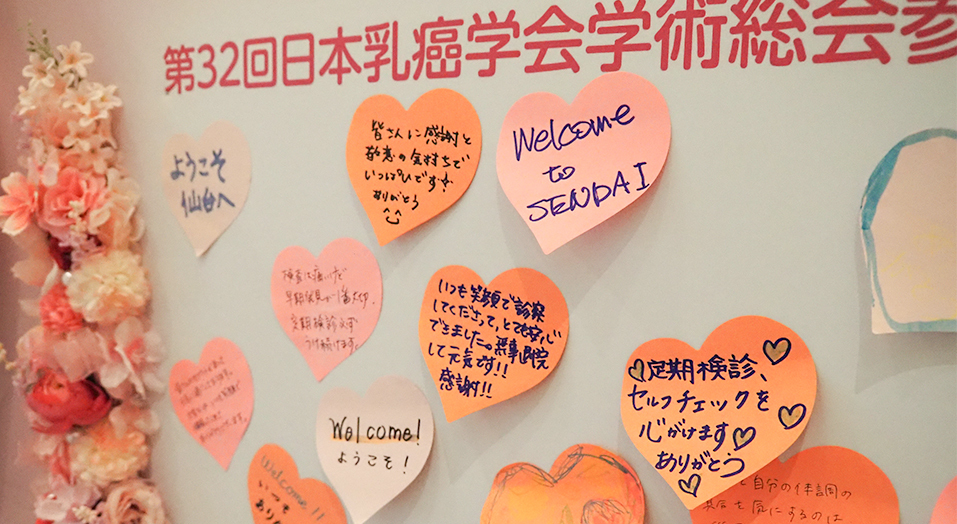 第32回日本乳癌学会学術総会参
ようこそ
仙台へ
皆さんに感謝と
敬意の気持ちで
いっぱいです!
ありがとう
Welcome
to
SENDAI
検査は痛いけど
早期発見が1番大切。
定期検診必ず
うけ続けます。
いつも笑顔で診察
してくださって、とても安心
できました。無事退院
して元気です!!
感謝!!
Welcome!
ようこそ!
定期検診、
セルフチェックを
心がけます
ありがとう
Welcome!!
いつも
あり
と自分の体調の
気にするのは